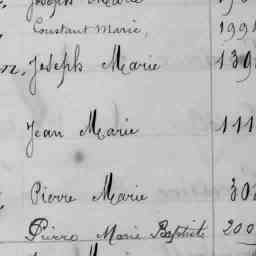 Joseph Marie
Constant Marie, 199
Joseph Marie 139
Jean Marie 111
Pierre Marie 30
Pierre Marie Baptiste 200
Marie